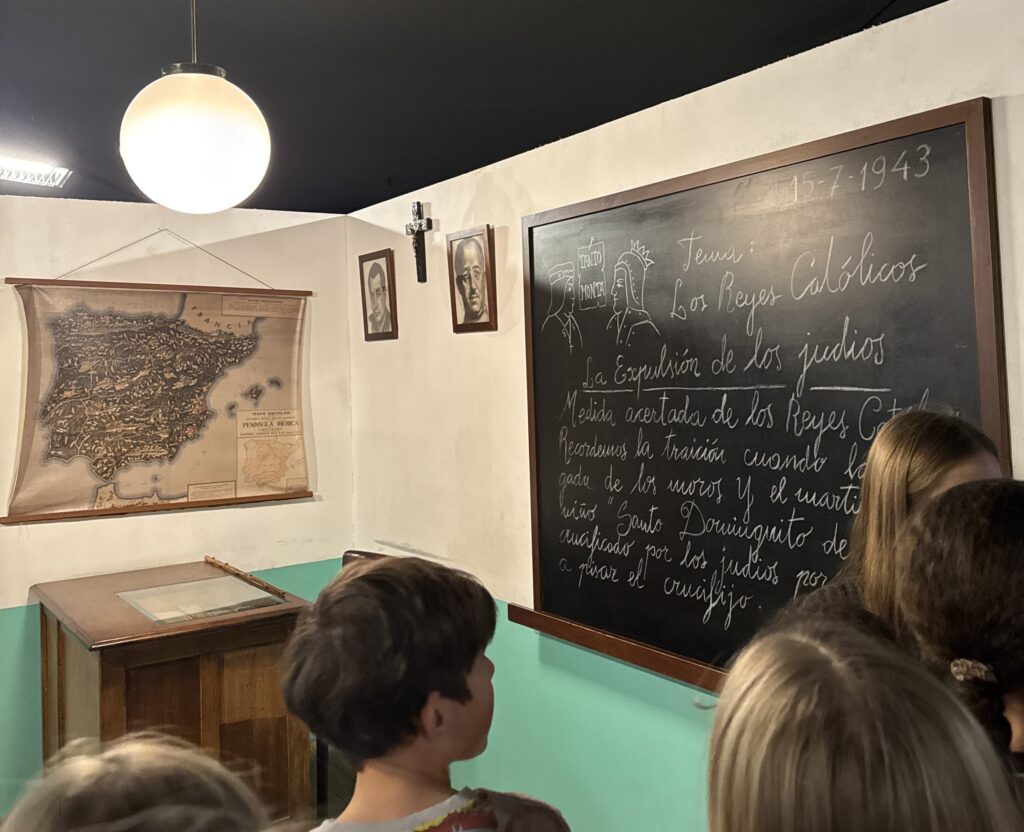 15-7-1943
TANTO
MONTA
Tema:
Los Reyes Católicos
La Expulsión de los judíos
Medida acertada de los Reyes
Recordemos la traición cuando
gada de los moros y el marti
niño "Santo Dominguito de
crucificado por los judíos por
a pisar el crucifijo.
FRANCIA
MAPA ESCOLAR
PENINSULA IBÉRICA